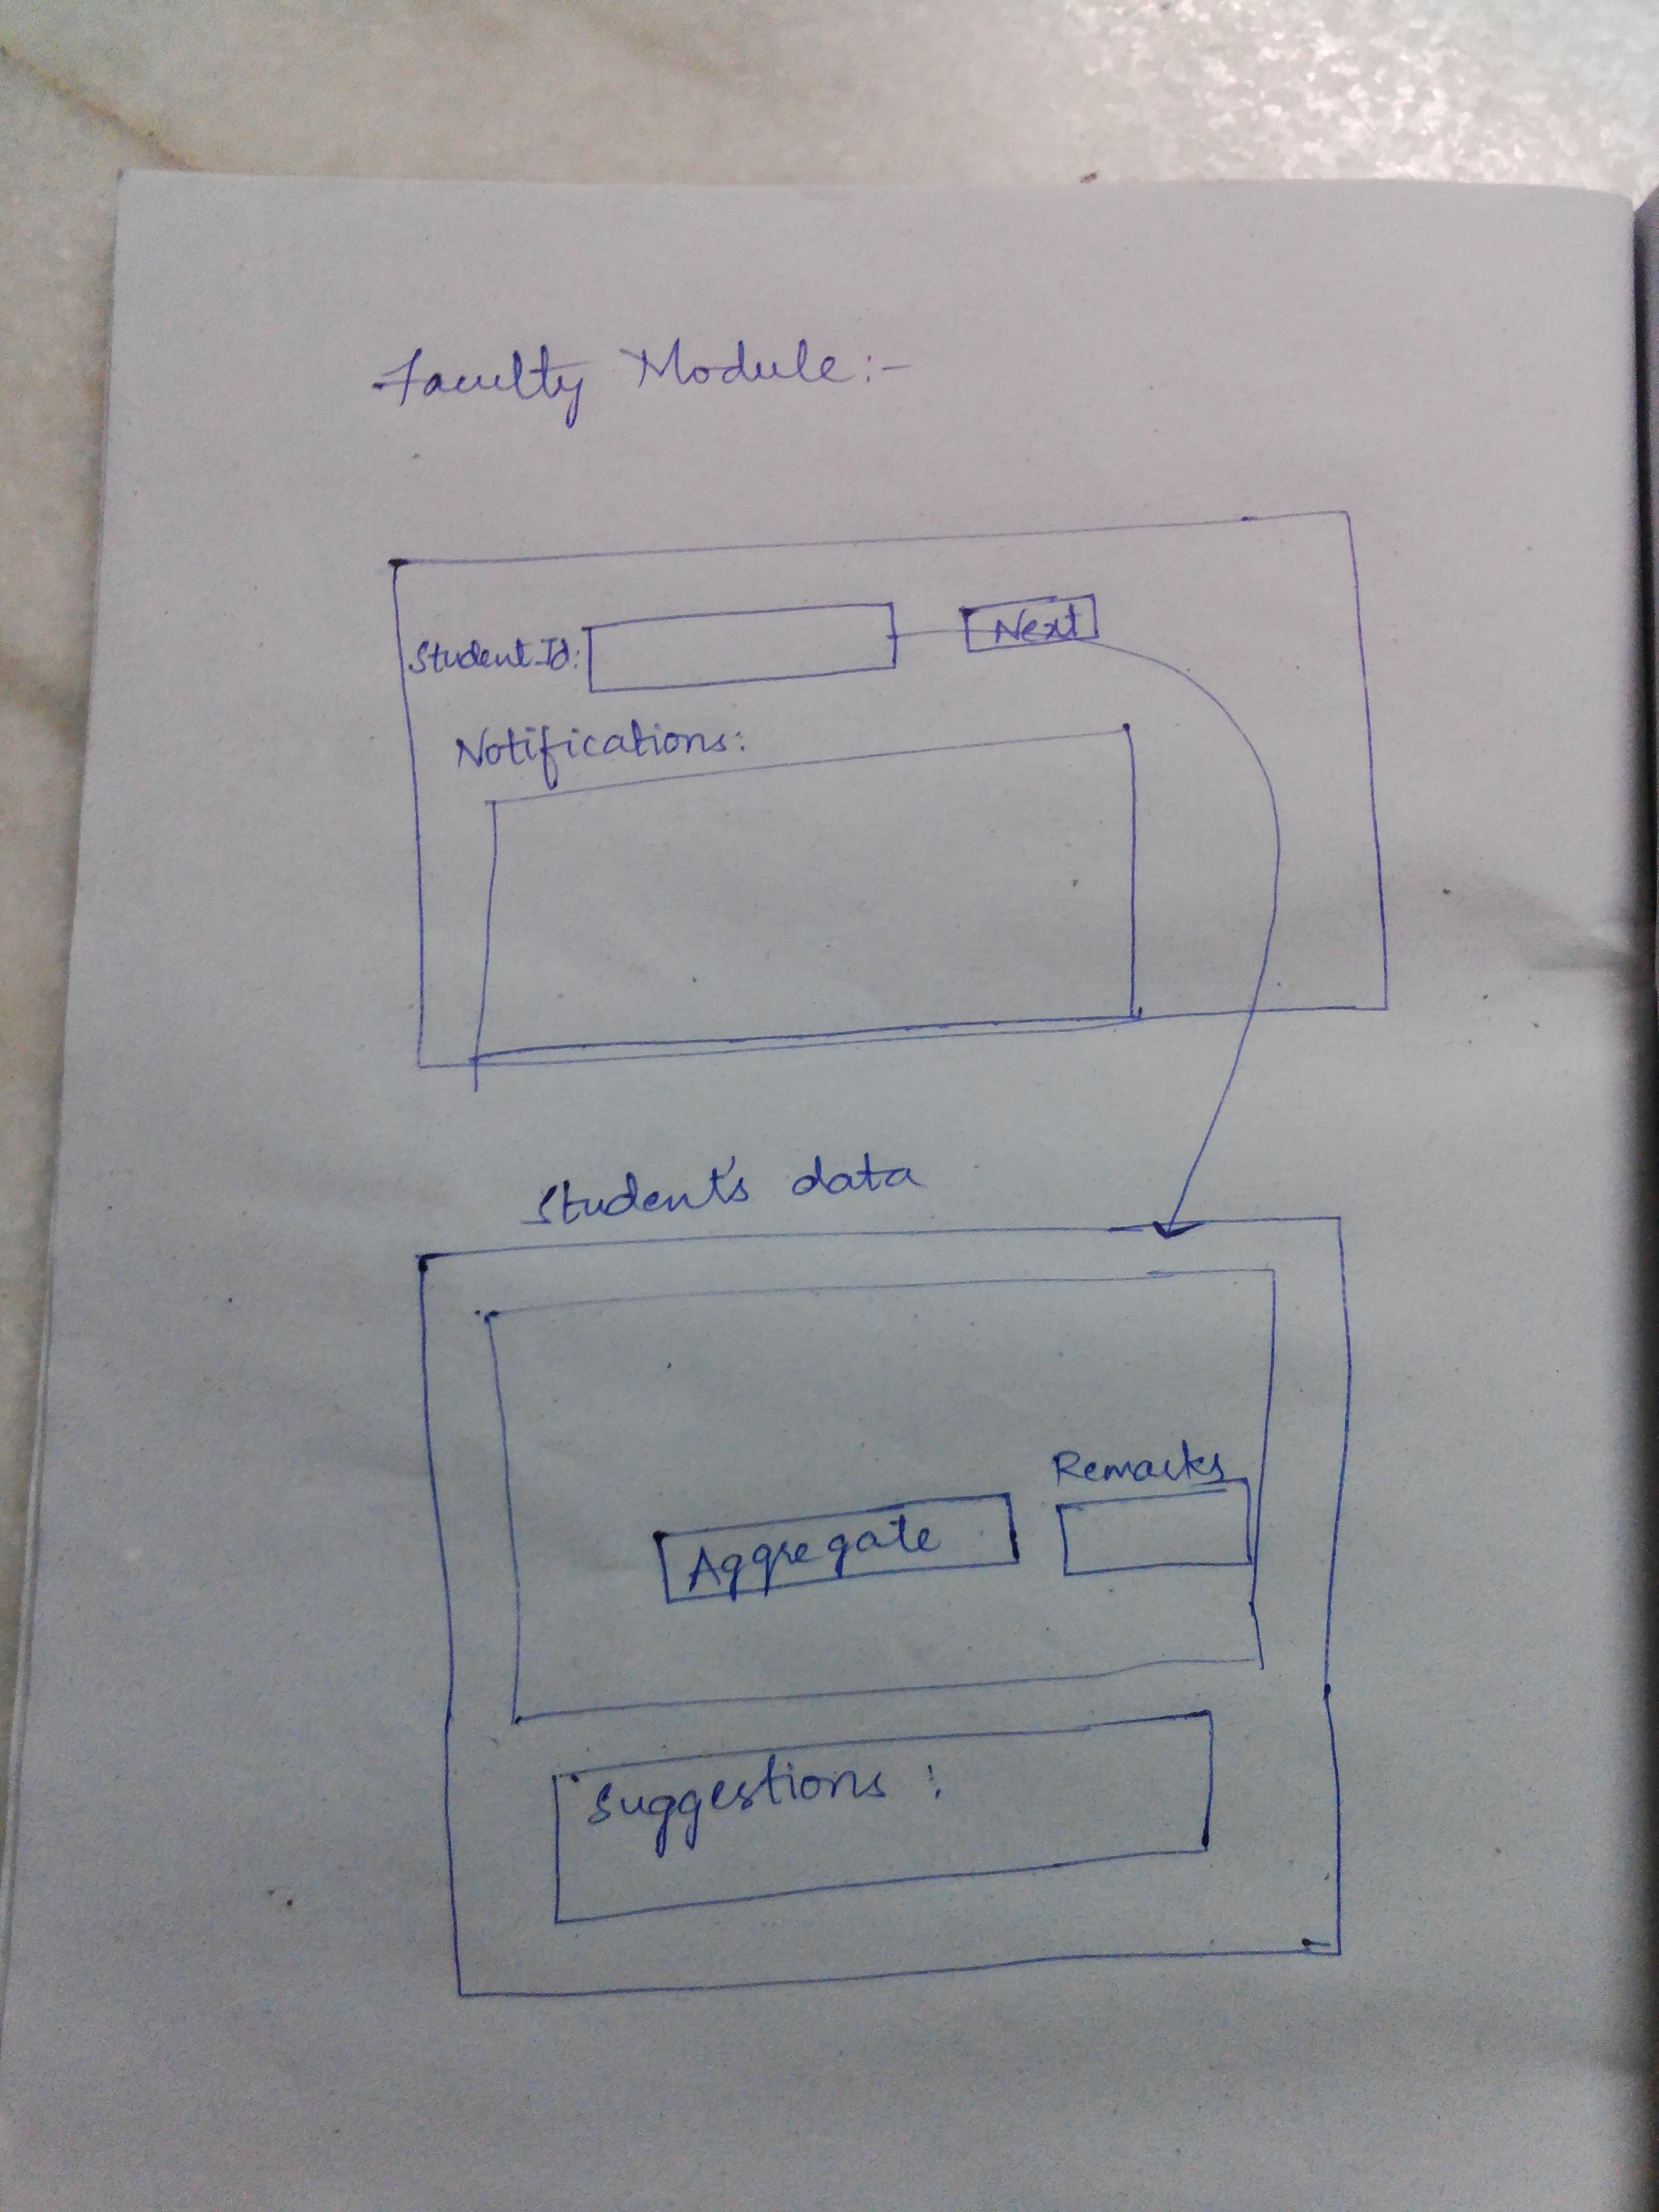 Faculty Module:-
Student Id: Next
Notifications:
Student's data
Remarks
Aggregate
Suggestions :